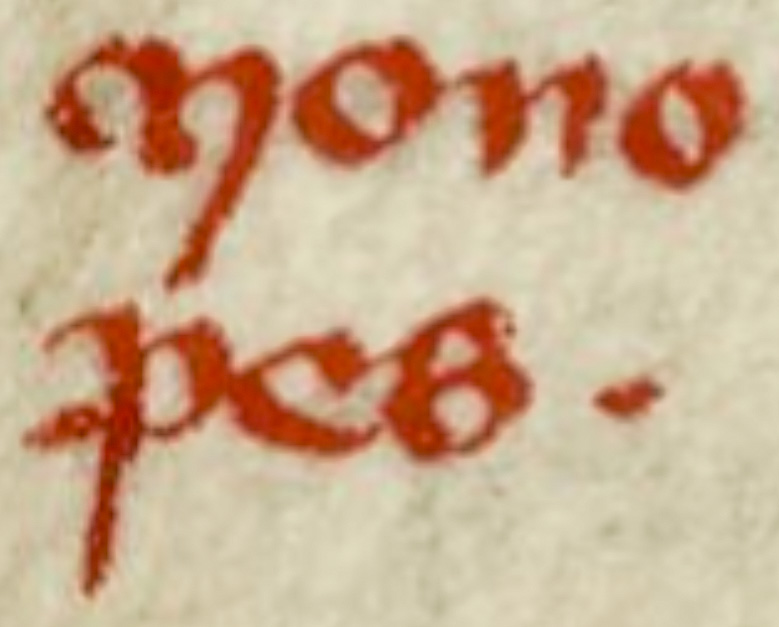 Mono
pes .